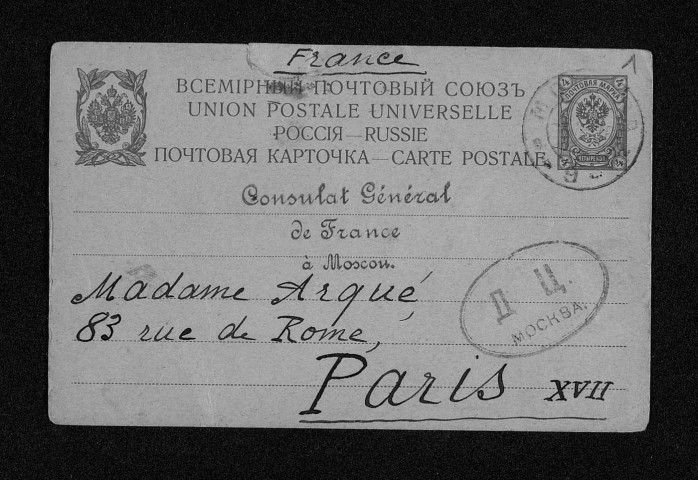 France
ВСЕМІРНЫЙ ПОЧТОВЫЙ СОЮЗЪ
UNION POSTALE UNIVERSELLE
РОССІЯ—RUSSIE
ПОЧТОВАЯ КАРТОЧКА—CARTE POSTALE
ПОЧТОВАЯ МАРКА
4
4
4
Consulat Général
de France
à Moscou.
Madame Arqué
83 rue de Rome,
Paris XVII
Д Ц.
МОСКВА.